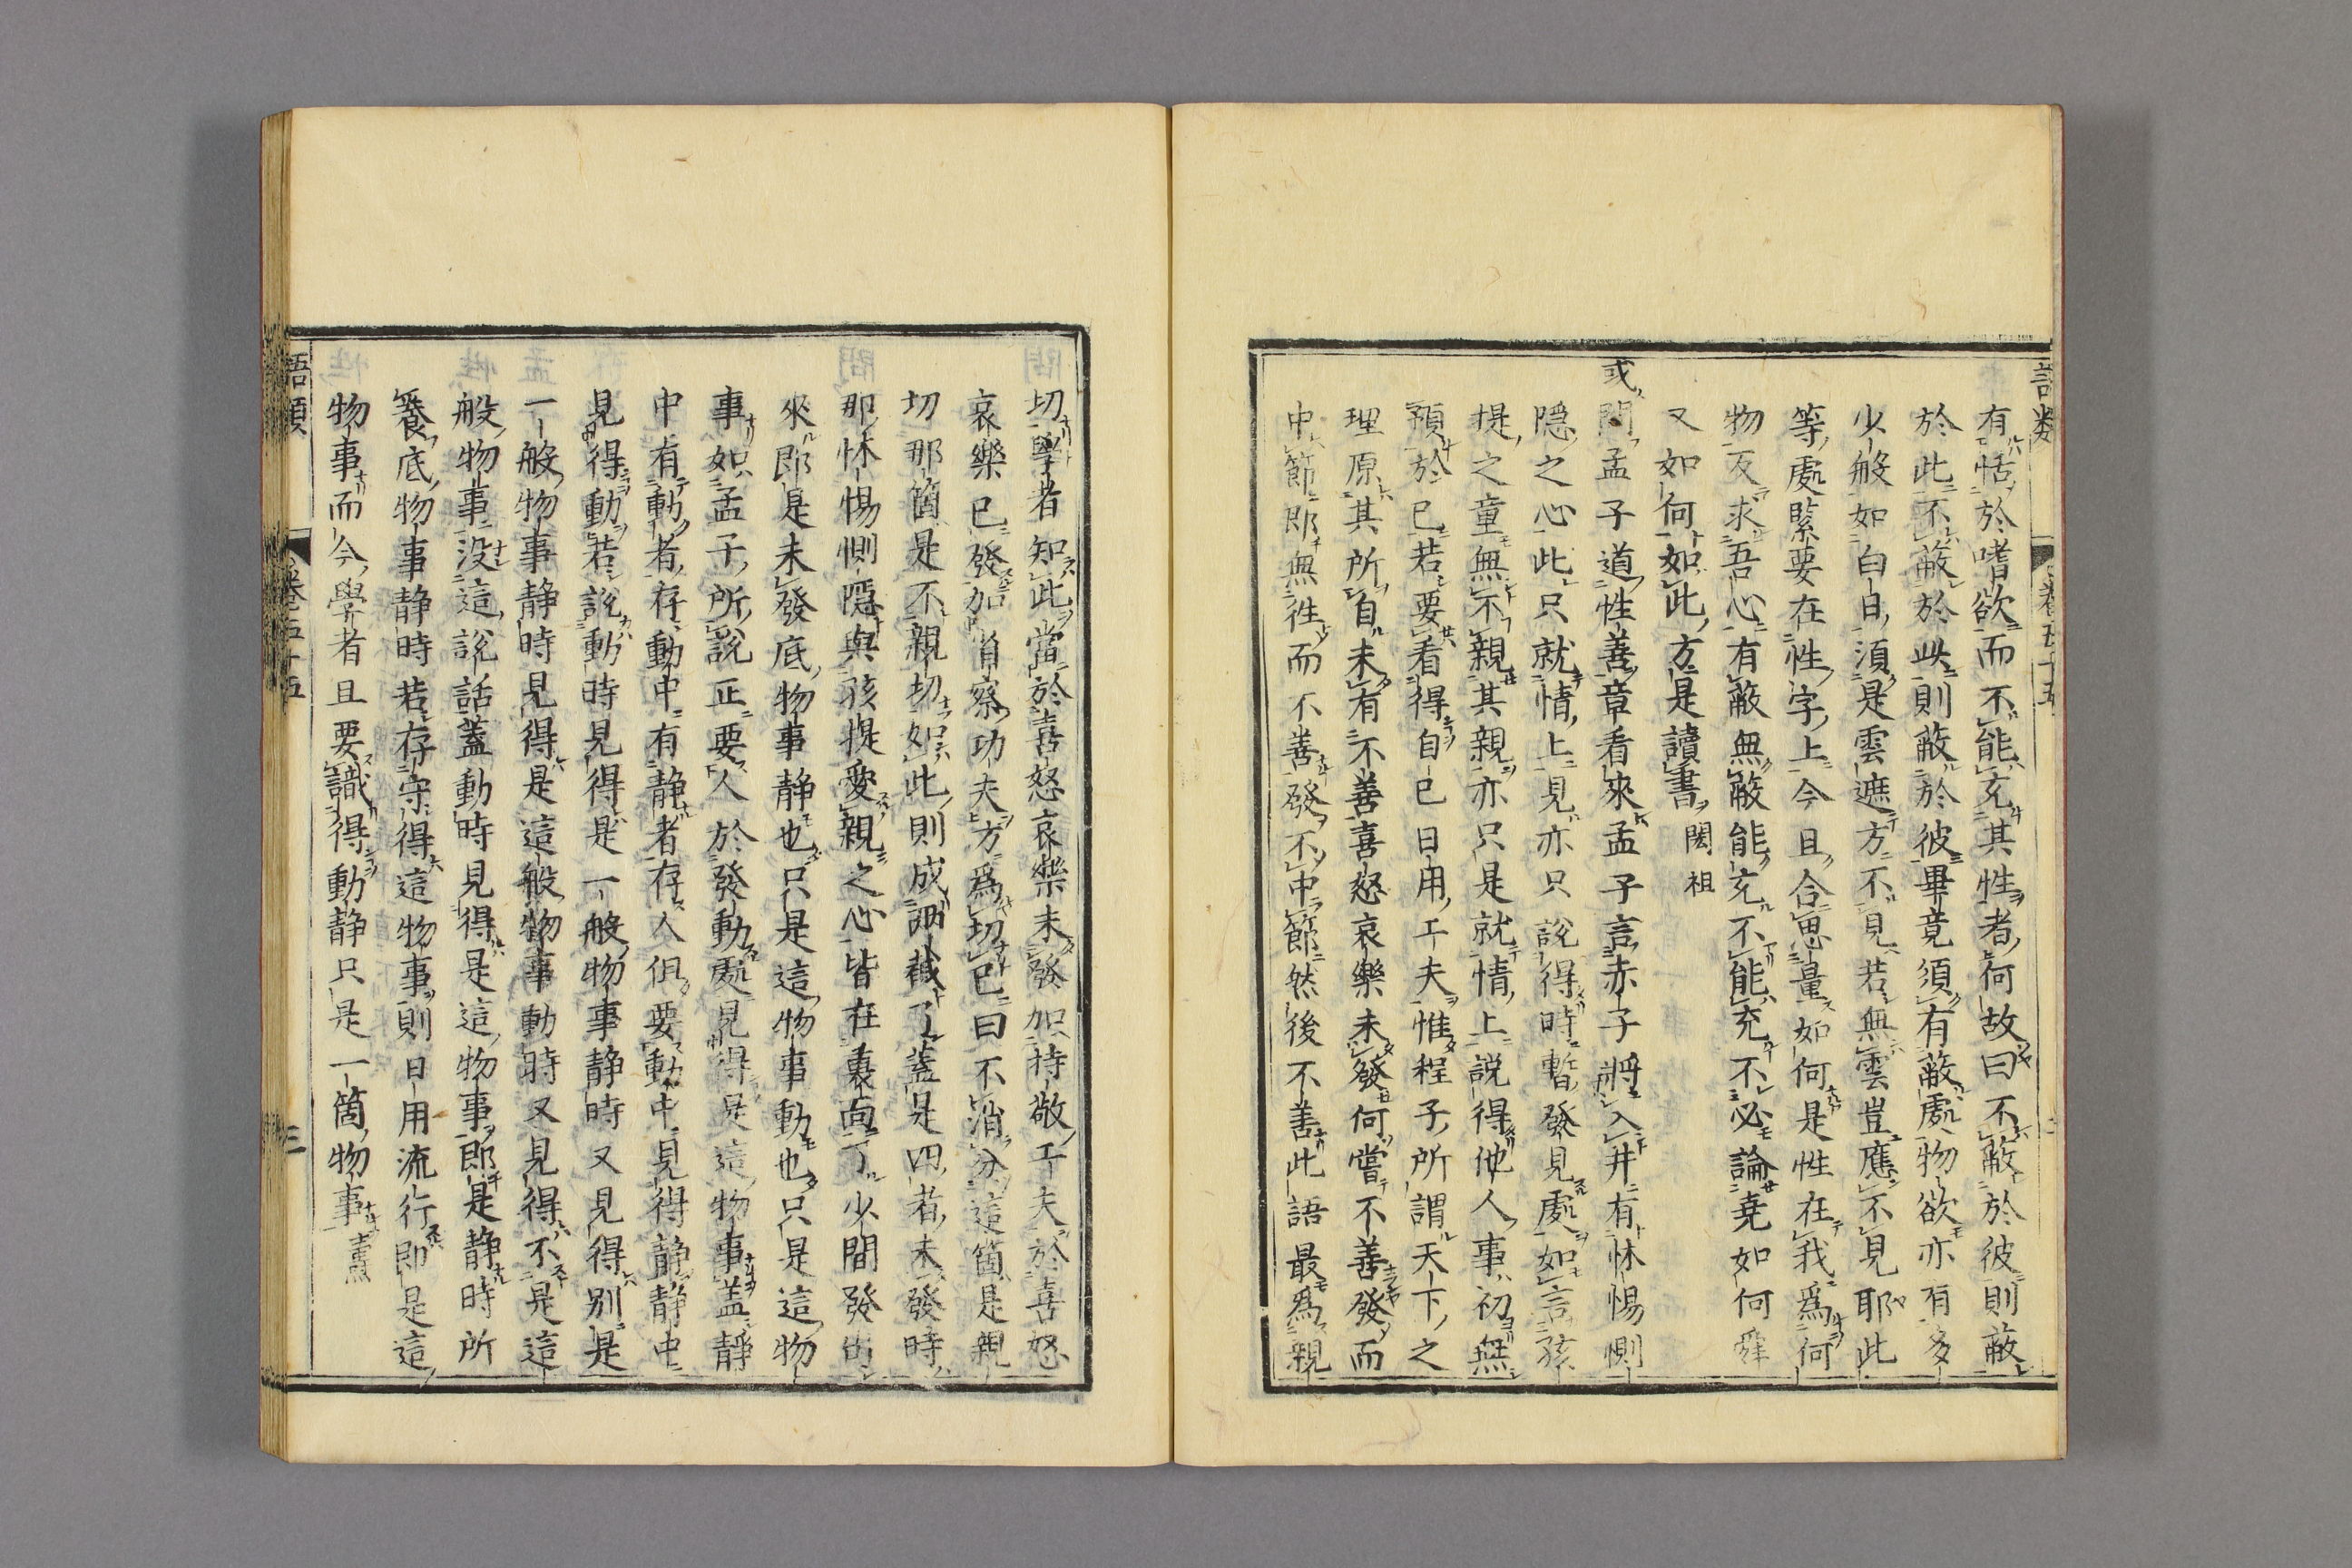 語類
卷五十五
有恬於嗜欲而不能充其性者何故曰不蔽於彼則蔽
於此不蔽於此則蔽於彼畢竟須有蔽處物欲亦有多
少般如白日須是雲遮方不見若無雲豈應不見耶此
等處緊要在性字上今且合思量如何是性在我爲何
物反求吾心有蔽無蔽能充不能充不必論堯如何舜
又如何如此方是讀書閎祖
或問孟子道性善章看來孟子言赤子將入井有怵惕惻
隱之心此只就情上見亦只說得時暫發見處如言孩
提之童無不親其親亦只是就情上說得他人事初無
預於己若要看得自己日用工夫惟程子所謂天下之
理原其所自未有不善喜怒哀樂未發何嘗不善發而
中節即無往而不善發不中節然後不善此語最爲親
切學者知此當於喜怒哀樂未發加持敬工夫於喜怒
哀樂已發加省察功夫方爲切己曰不消分這箇是親
切那箇是不親切如此則成兩截了蓋是四者未發時
那怵惕惻隱與孩提愛親之心皆在裏面了少間發出
來即是未發底物事靜也只是這物事動也只是這物
事如孟子所說正要人於發動處見得是這物事蓋靜
中有動者存動中有靜者存人但要動中見得靜靜中
見得動若說動時見得是一般物事靜時又見得別是
一般物事靜時見得是這般物事動時又見得不是這
般物事沒這說話蓋動時見得是這物事即是靜時所
養底物事靜時若存守得這物事則日用流行即是這
物事而今學者且要識得動靜只是一箇物事燾
語類
卷五十五
三